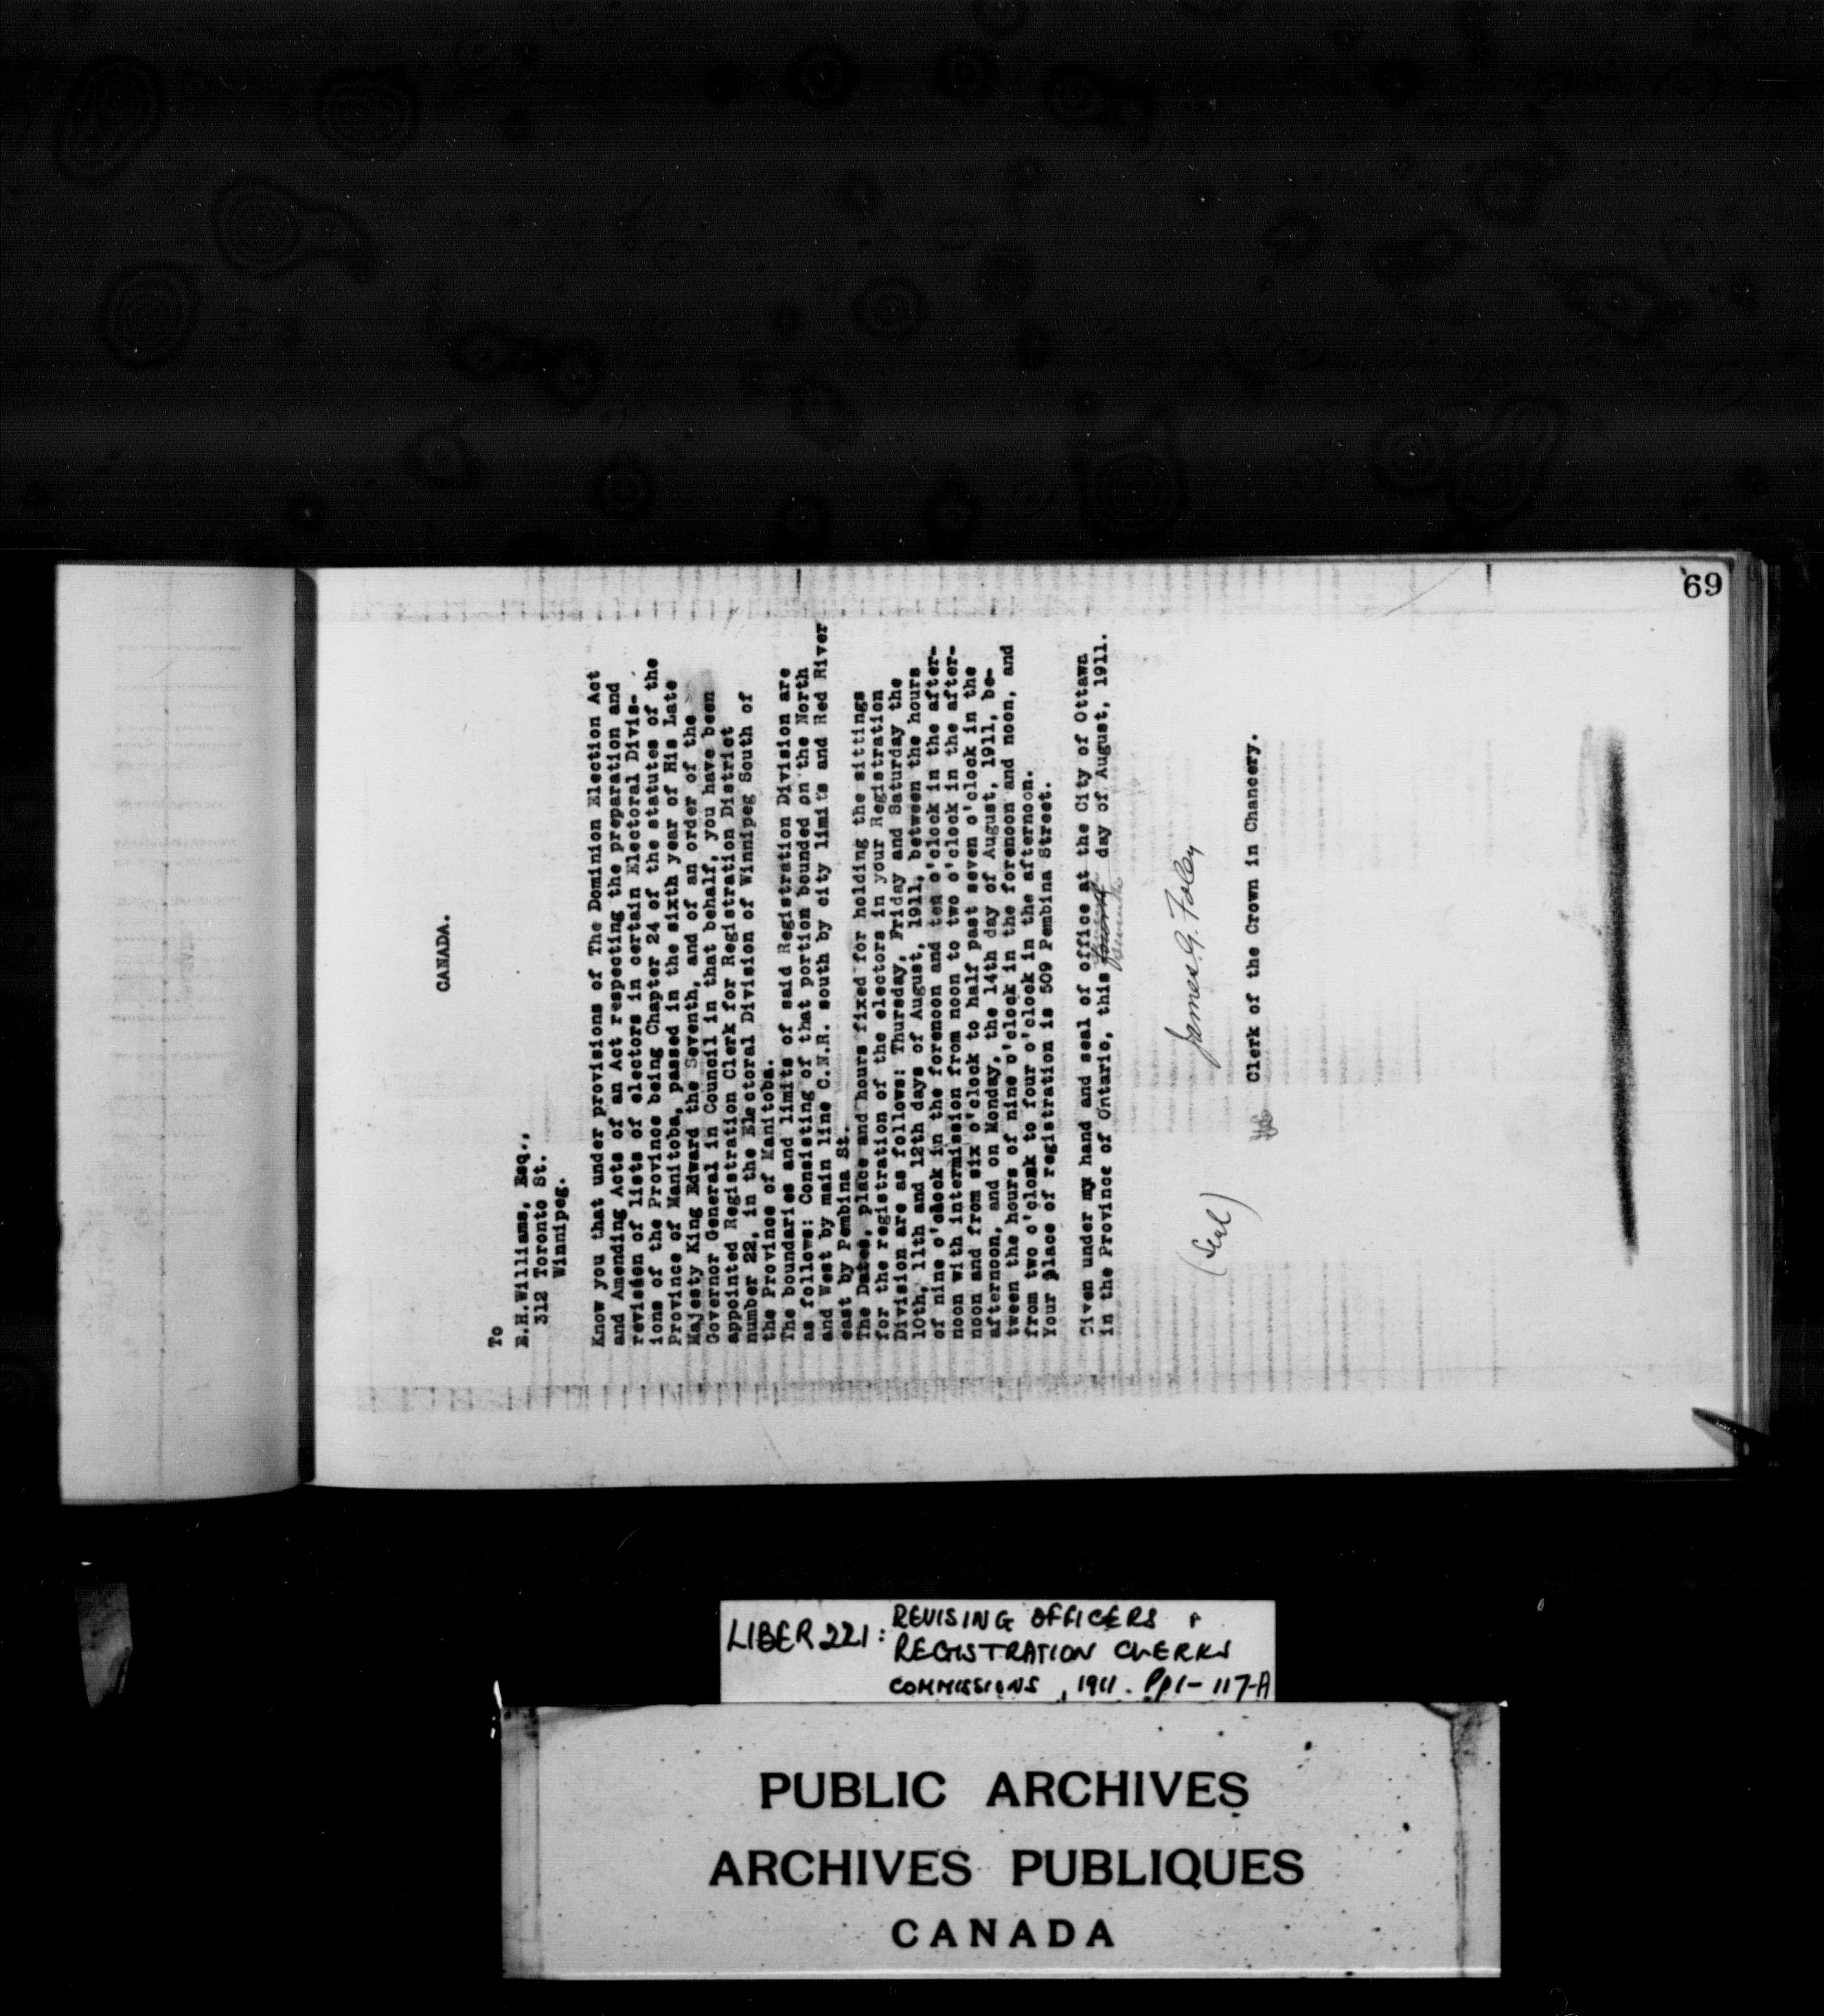 69
CANADA.
To
E.H.Williams, Esq.,
312 Toronto St.
Winnipeg.
Know you that under provisions of The Dominion Election Act
and Amending Acts of an Act respecting the preparation and
revision of lists of electors in certain Electoral Divis-
ions of the Province being Chapter 24 of the statutes of the
Province of Manitoba, passed in the sixth year of His Late
Majesty King Edward the Seventh, and of an order of the
Governor General in Council in that behalf, you have been
appointed Registration Clerk for Registration District
number 22, in the Electoral Division of Winnipeg South of
the Province of Manitoba.
The boundaries and limits of said Registration Division are
as follows: Consisting of that portion bounded on the North
and West by main line C.N.R. south by city limits and Red River
east by Pembina St.
The Dates, place and hours fixed for holding the sittings
for the registration of the electors in your Registration
Division are as follows: Thursday, Friday and Saturday the
10th, 11th and 12th days of August, 1911, between the hours
of nine o'clock in the forenoon and ten o'clock in the after-
noon with intermission from noon to two o'clock in the after-
noon and from six o'clock to half past seven o'clock in the
afternoon, and on Monday, the 14th day of August, 1911, be-
tween the hours of nine o'clock in the forenoon and noon, and
from two o'cloak to four o'clock in the afternoon.
Your place of registration is 509 Pembina Street.
Given under my hand and seal of office at the City of Ottawa
in the Province of Ontario, this fourth day of August, 1911.
seventh
James G. Foley
(Seal)
Clerk of the Crown in Chancery.
LIBER 221: REVISING OFFICERS &
REGISTRATION CLERKS
COMMISSIONS, 1911. Pp 1-117-A
PUBLIC ARCHIVES
ARCHIVES PUBLIQUES
CANADA